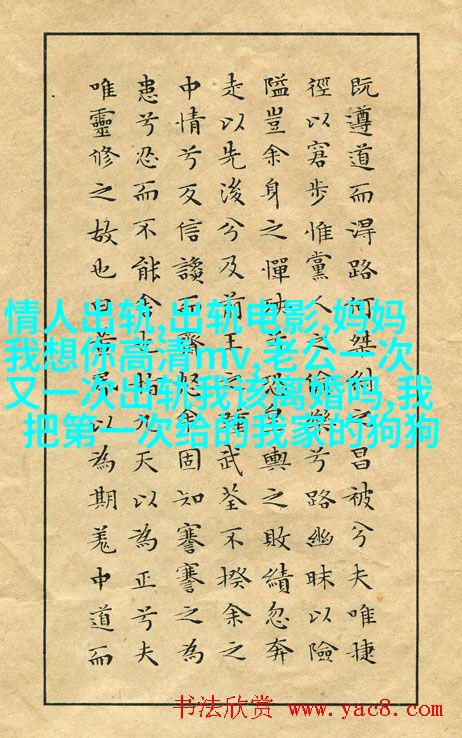 既遵道而得路何桀紂之昌被兮夫唯捷
徑以窘步惟黨人之偷樂兮路幽昧以險
隘豈余身之憚殃兮恐皇輿之敗績忽奔
走以先後兮及前王之踵武荃不揆余之
中情兮反信讒而齋怒余固知謇謇之為
患兮忍而不能舍也指九天以為正兮夫
唯靈修之故也曰黃昏以為期羌中道而
情人出轨,出轨电影,妈妈
我想你高清mv,老公一次
又一次出轨我该离婚吗,我
把第一次给的我家的狗狗
书法欣赏 www.yac8.com